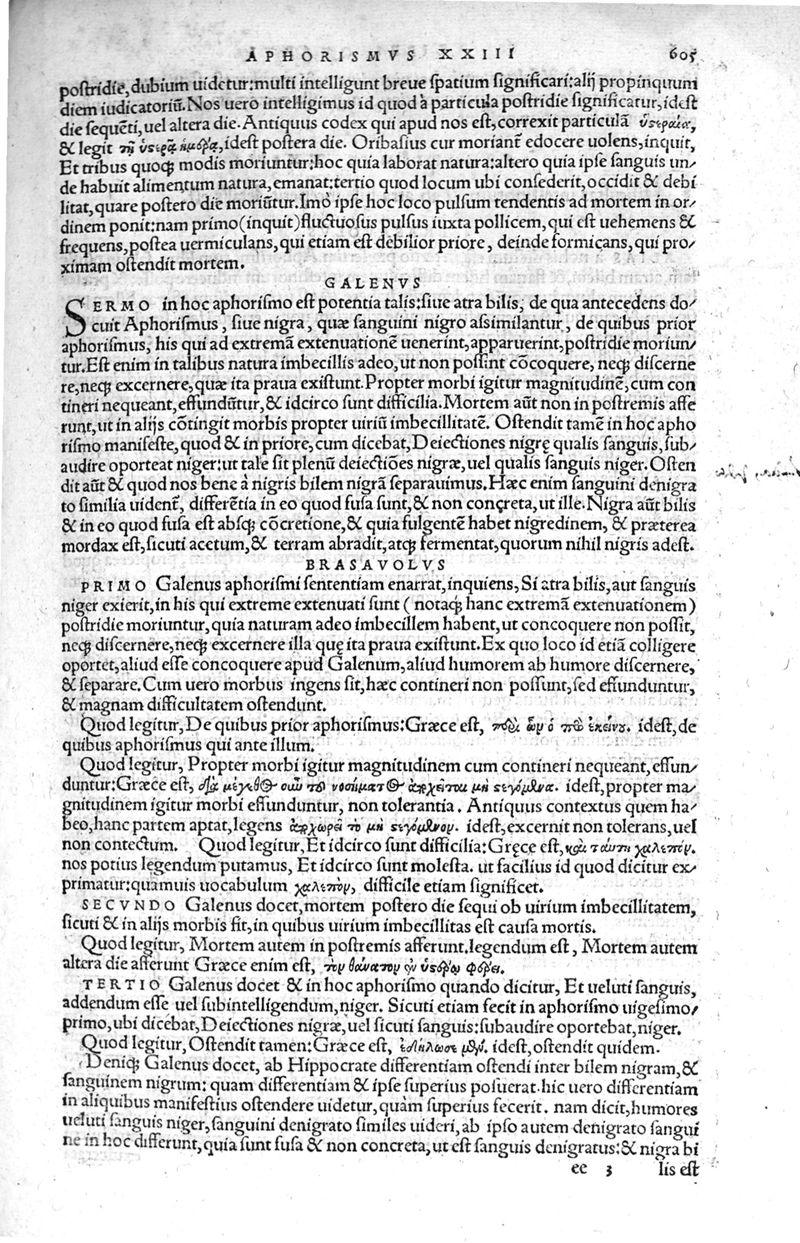 APHORISMVS XXIII 605
postridie, dubium uidetur: multi intelligunt breue spatium significari: alij propinquum
diem iudicatoriũ. Nos uero intelligimus id quod à particula postridie significatur, idest
die sequẽti, uel altera die. Antiquus codex qui apud nos est, correxit particulã ὑστεραία,
& legit τῇ ὑστέρᾳ ἡμέρᾳ, idest postera die. Oribasius cur moriant̃ edocere uolens, inquit,
Et tribus quoqꝫ modis moriuntur: hoc quia laborat natura: altero quia ipse sanguis un/
de habuit alimentum natura, emanat: tertio quod locum ubi consederit, occidit & debi
litat, quare postero die moriũtur. Imò ipse hoc loco pulsum tendentis ad mortem in or/
dinem ponit: nam primo (inquit) fluctuosus pulsus iuxta pollicem, qui est uehemens &
frequens, postea uermiculans, qui etiam est debilior priore, deinde formicans, qui pro/
ximam ostendit mortem.
GALENVS
SERMO in hoc aphorismo est potentia talis: siue atra bilis, de qua antecedens do/
cuit Aphorismus, siue nigra, quæ sanguini nigro assimilantur, de quibus prior
aphorismus, his qui ad extremã extenuationẽ uenerint, apparuerint, postridie moriun/
tur. Est enim in talibus natura imbecillis adeo, ut non possint cõcoquere, neqꝫ discerne
re, neqꝫ excernere, quæ ita praua existunt. Propter morbi igitur magnitudinẽ, cum con
tineri nequeant, effundũtur, & idcirco sunt difficilia. Mortem aũt non in postremis affe
runt, ut in alijs cõtingit morbis propter uiriũ imbecillitatẽ. Ostendit tamẽ in hoc apho
rismo manifeste, quod & in priore, cum dicebat, Deiectiones nigrę qualis sanguis, sub/
audire oporteat niger: ut tale sit plenũ deiectiões nigræ, uel qualis sanguis niger. Osten
dit aũt & quod nos bene à nigris bilem nigrã separauimus. Hæc enim sanguini denigra
to similia uident̃, differẽtia in eo quod fusa sunt, & non concreta, ut ille. Nigra aũt bilis
& in eo quod fusa est absqꝫ cõcretione, & quia fulgentẽ habet nigredinem, & præterea
mordax est, sicuti acetum, & terram abradit, atqꝫ fermentat, quorum nihil nigris adest.
BRASAVOLVS
PRIMO Galenus aphorismi sententiam enarrat, inquiens, Si atra bilis, aut sanguis
niger exierit, in his qui extreme extenuati sunt (notaqꝫ hanc extremã extenuationem)
postridie moriuntur, quia naturam adeo imbecillem habent, ut concoquere non possit,
neqꝫ discernere, neqꝫ excernere illa quę ita praua existunt. Ex quo loco id etiã colligere
oportet, aliud esse concoquere apud Galenum, aliud humorem ab humore discernere,
& separare. Cum uero morbus ingens sit, hæc contineri non possunt, sed effunduntur,
& magnam difficultatem ostendunt.
Quod legitur, De quibus prior aphorismus: Græce est, περὶ ὧν ὁ πρὸ ἐκείνου. idest, de
quibus aphorismus qui ante illum.
Quod legitur, Propter morbi igitur magnitudinem cum contineri nequeant, effun/
duntur: Græce est, διὰ μέγεθος οὖν τοῦ νοσήματος ἐκχεῖται μὴ στεγόμενα. idest, propter ma/
gnitudinem igitur morbi effunduntur, non tolerantia. Antiquus contextus quem ha/
beo, hanc partem aptat, legens ἐκχωρεῖ τὸ μὴ στεγόμενον. idest, excernit non tolerans, uel
non contectum. Quod legitur, Et idcirco sunt difficilia: Gręce est, καὶ ταύτῃ χαλεπόν.
nos potius legendum putamus, Et idcirco sunt molesta. ut facilius id quod dicitur ex/
primatur: quamuis uocabulum χαλεπόν, difficile etiam significet.
SECVNDO Galenus docet, mortem postero die sequi ob uirium imbecillitatem,
sicuti & in alijs morbis fit, in quibus uirium imbecillitas est causa mortis.
Quod legitur, Mortem autem in postremis afferunt. legendum est, Mortem autem
altera die afferunt Græce enim est, τὸν θάνατον ἐν ὑστέρῳ φέρει.
TERTIO Galenus docet & in hoc aphorismo quando dicitur, Et ueluti sanguis,
addendum esse uel subintelligendum, niger. Sicuti etiam fecit in aphorismo uigesimo/
primo, ubi dicebat, Deiectiones nigræ, uel sicuti sanguis: subaudire oportebat, niger.
Quod legitur, Ostendit tamen: Græce est, ἐδήλωσε μὲν. idest, ostendit quidem.
Deniqꝫ Galenus docet, ab Hippocrate differentiam ostendi inter bilem nigram, &
sanguinem nigrum: quam differentiam & ipse superius posuerat. hic uero differentiam
in aliquibus manifestius ostendere uidetur, quàm superius fecerit. nam dicit, humores
ueluti sanguis niger, sanguini denigrato similes uideri, ab ipso autem denigrato sangui
ne in hoc differunt, quia sunt fusa & non concreta, ut est sanguis denigratus: & nigra bi
ee 3 lis est